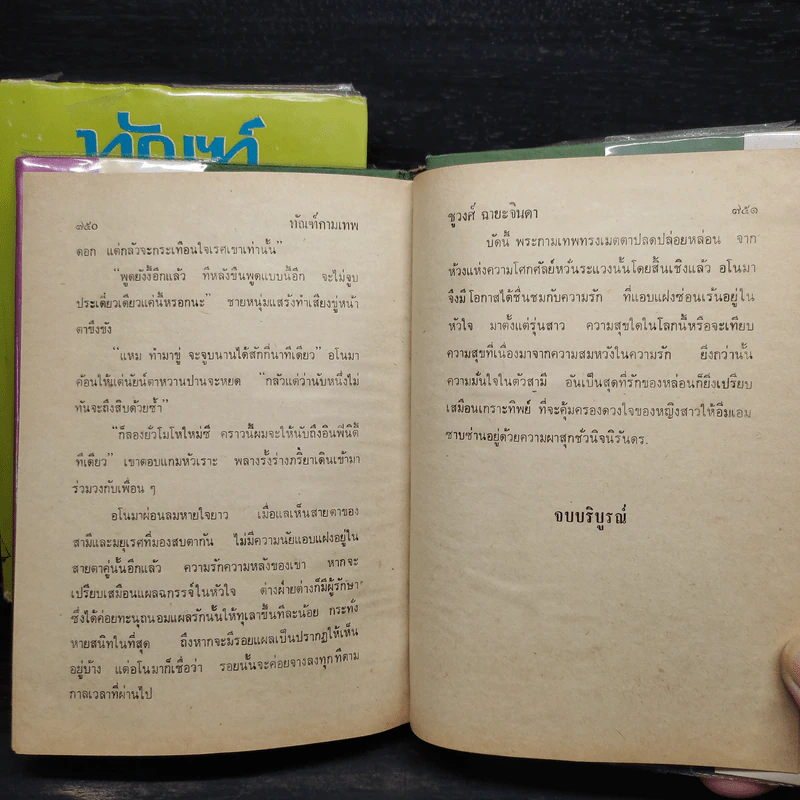 ทัณฑ์
๗๕๐ ทัณฑ์กามเทพ
ดอก แต่กลัวจะกระเทือนใจเรศเขาเท่านั้น”
“พูดยังงี้อีกแล้ว ทีหลังขืนพูดแบบนี้อีก จะไม่จูบ
ประเดี๋ยวเดียวแค่นี้หรอกนะ” ชายหนุ่มแสร้งทำเสียงขู่หน้า
ตาขึงขัง
“แหม ทำมาขู่ จะจูบนานได้สักกี่นาทีเดียว” อโนมา
ค้อนให้แต่นัยน์ตาหวานปานจะหยด “กลัวแต่ว่านับหนึ่งไม่
ทันจะถึงสิบด้วยซ้ำ”
“ก็ลองยั่วโมโหใหม่ซี คราวนี้ผมจะให้นับถึงอินฟินิตี้
ทีเดียว” เขาตอบแกมหัวเราะ พลางรั้งร่างภริยาเดินเข้ามา
ร่วมวงกับเพื่อน ๆ
อโนมาผ่อนลมหายใจยาว เมื่อแลเห็นสายตาของ
สามีและมยุเรศที่มองสบตากัน ไม่มีความนัยแอบแฝงอยู่ใน
สายตาคู่นั้นอีกแล้ว ความรักความหลังของเขา หากจะ
เปรียบเสมือนแผลฉกรรจ์ในหัวใจ ต่างฝ่ายต่างก็มีผู้รักษา
ซึ่งได้ค่อยทะนุถนอมแผลรักนั้นให้ทุเลาขึ้นทีละน้อย กระทั่ง
หายสนิทในที่สุด ถึงหากจะมีรอยแผลเป็นปรากฏให้เห็น
อยู่บ้าง แต่อโนมาก็เชื่อว่า รอยนั้นจะค่อยจางลงทุกทีตาม
กาลเวลาที่ผ่านไป
ชูวงศ์ ฉายะจินดา ๗๕๑
บัดนี้ พระกามเทพทรงเมตตาปลดปล่อยหล่อน จาก
ห้วงแห่งความโศกศัลย์หวั่นระแวงนั้นโดยสิ้นเชิงแล้ว อโนมา
จึงมีโอกาสได้ชื่นชมกับความรัก ที่แอบแฝงซ่อนเร้นอยู่ใน
หัวใจ มาตั้งแต่รุ่นสาว ความสุขใดในโลกนี้หรือจะเทียบ
ความสุขที่เนื่องมาจากความสมหวังในความรัก ยิ่งกว่านั้น
ความมั่นใจในตัวสามี อันเป็นสุดที่รักของหล่อนก็ยิ่งเปรียบ
เสมือนเกราะทิพย์ ที่จะคุ้มครองดวงใจของหญิงสาวให้อิ่มเอม
ซาบซ่านอยู่ด้วยความผาสุกชั่วนิจนิรันดร.
จบบริบูรณ์